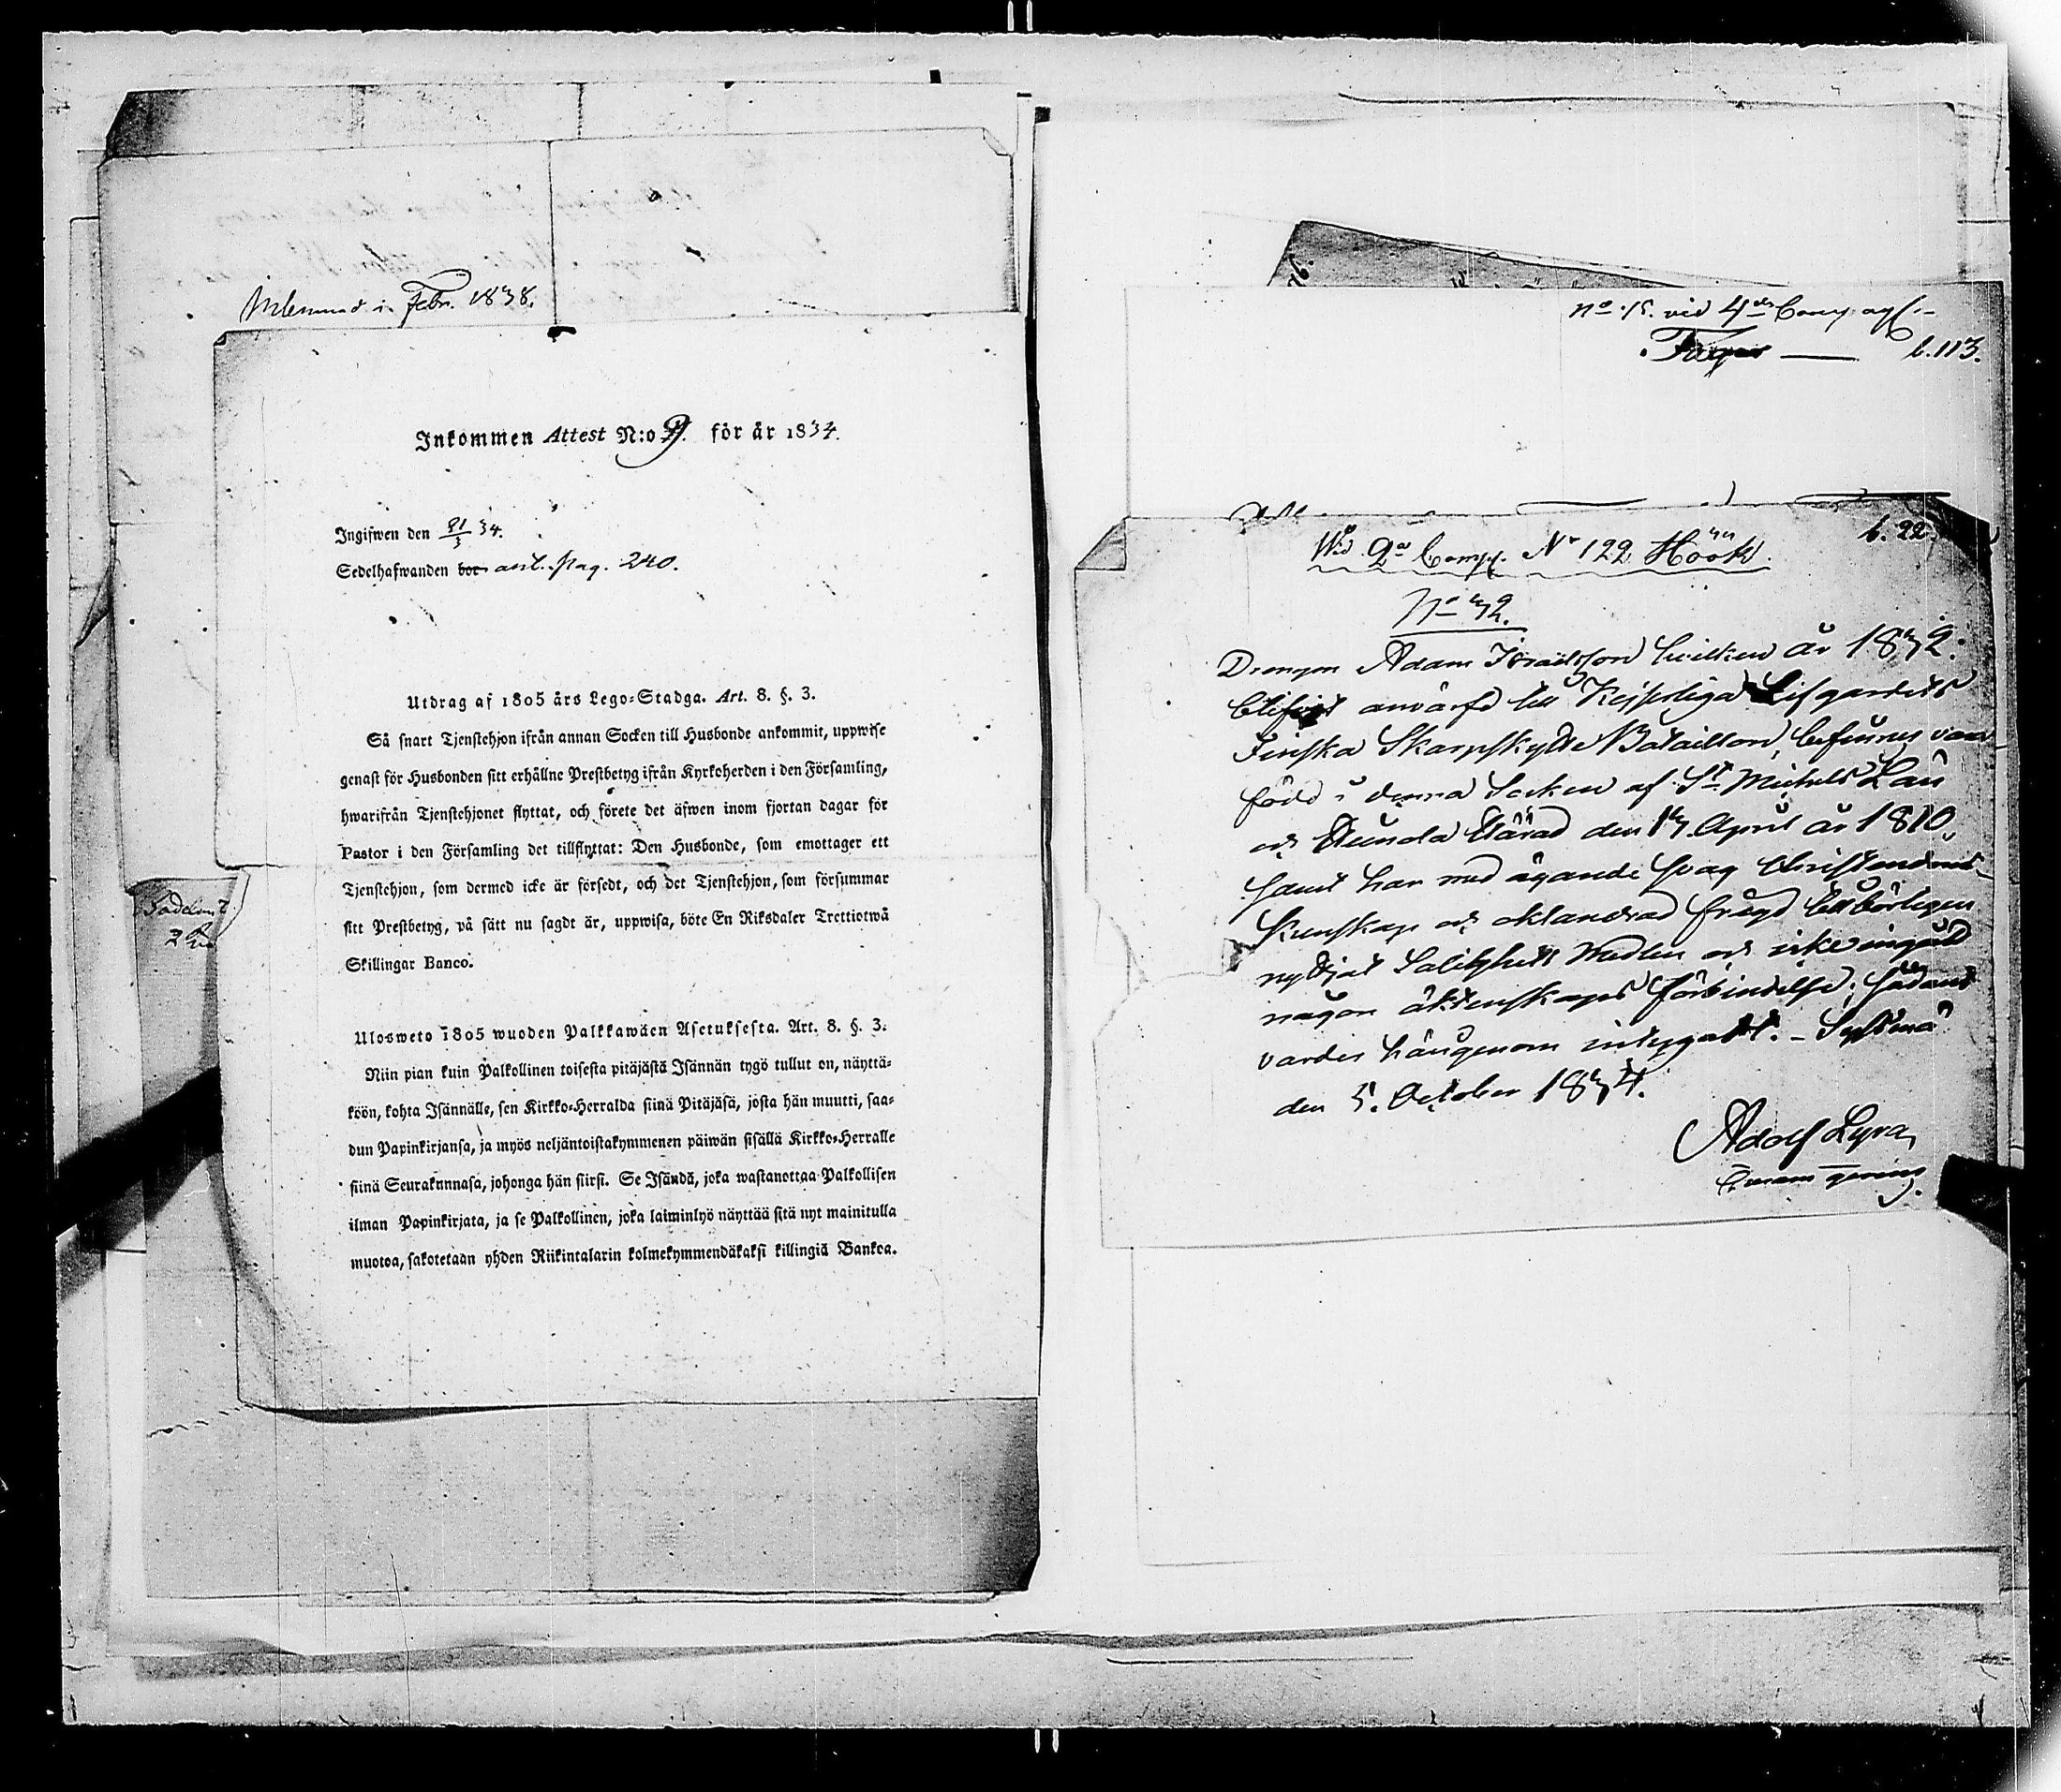 i Febr. 1838.
Inkommen Attest N:o 9. för år 1834.
Ingifwen den 21/3 34.
Sedelhafwanden bor ant. Pag. 240.
Utdrag af 1805 års Lego-Stadga. Art. 8. §. 3.
Så snart Tjenstehjon ifrån annan Socken till Husbonde ankommit, uppwise
genast för Husbonden sitt erhållne Prestbetyg ifrån Kyrkoherden i den Församling,
hwarifrån Tjenstehjonet flyttat, och förete det äfwen inom fjortan dagar för
Pastor i den Församling det tillflyttat: Den Husbonde, som emottager ett
Tjenstehjon, som dermed icke är försedt, och det Tjenstehjon, som försummar
sitt Prestbetyg, på sätt nu sagdt är, uppwisa, böte En Riksdaler Trettiotwå
Skillingar Banco.
Ulosweto 1805 wuoden Palkkawäen Asetuksesta. Art. 8. §. 3.
Niin pian kuin Palkollinen toisesta pitäjästä Isännän tygö tullut on, näyttä-
köön, kohta Isännälle, sen Kirkko-Herralda siinä Pitäjäsä, josta hän muutti, saa-
dun Papinkirjansa, ja myös neljäntoistakymmenen päiwän sisällä Kirkko-Herralle
siinä Seurakunnasa, johonga hän siirsi. Se Isändä, joka wastanottaa Palkollisen
ilman Papinkirjata, ja se Palkollinen, joka laiminlyö näyttää sitä nyt mainitulla
muotoa, sakotetaan yhden Riikintalarin kolmekymmendäkaksi killingiä Bankoa.
No 15. vid 4de Comp
b. 113.
b. 22.
Wid 2a Comp. Nr 122 Höök.
No 32.
Drengen Adam Israelsson hvilken år 1832.
blifvit anvärfd till Kejserliga Lifgardets
Finska Skarpskytte Bataillon, befinnes vara
född i denna Socken af St. Michels Län
och Hærad den 13 April år 1810,
samt har med ägande svag Christendoms-
kunskap och oklandrad frägd tillbörligen
nyttjat Salighets Medlen och icke ingått
någon äktenskaps förbindelse; sådant
varder härigenom intygadt. – Sysmä
den 5. October 1834.
Adolf Lyra